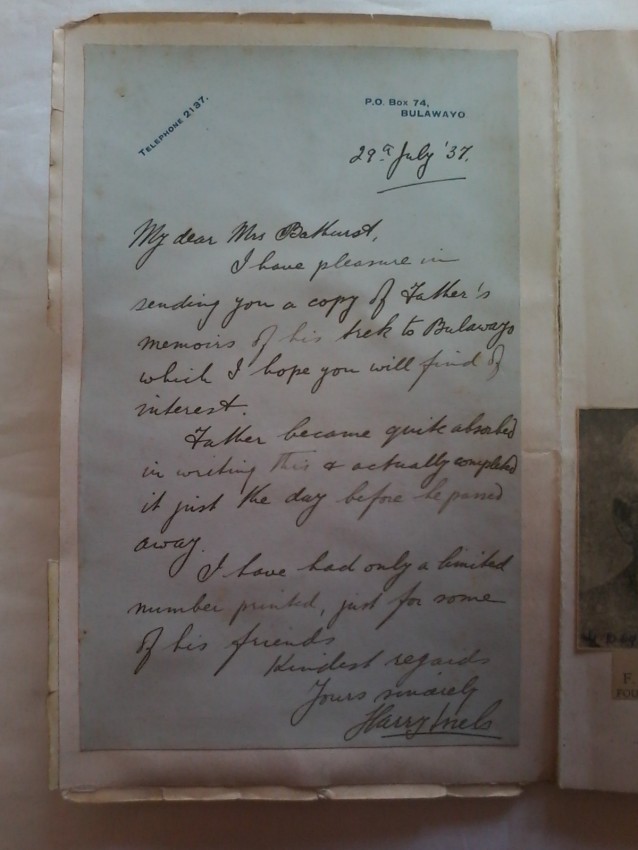 TELEPHONE 2137.
P.O. BOX 74,
BULAWAYO
29th July '37.
My dear Mrs Bathurst,
I have pleasure in
sending you a copy of Father's
memoirs of his trek to Bulawayo
which I hope you will find of
interest.
Father became quite absorbed
in writing this & actually completed
it just the day before he passed
away.
I have had only a limited
number printed, just for some
of his friends
Kindest regards
Yours sincerely
Harry
F.
FOU